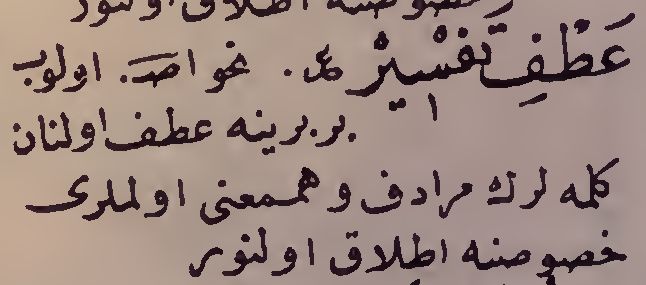 خصوصنه اطلاق اولنور
عَطْفِ تَفْسِيرْ ع. نحو اصـ. اولوب
بربرينه عطف اولنان
كلمه لرك مرادف و هممعنى اولملرى
خصوصنه اطلاق اولنور